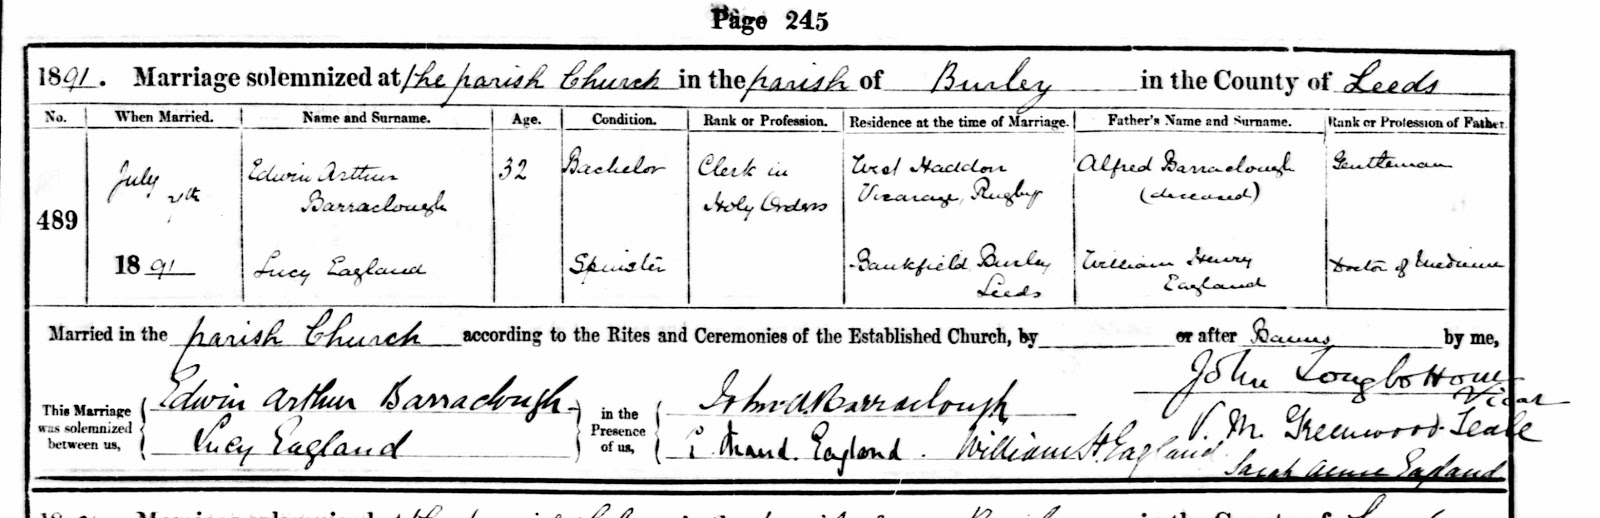 Page 245
1891. Marriage solemnized at the parish Church in the parish of Burley in the County of Leeds
No. When Married. Name and Surname. Age. Condition. Rank or Profession. Residence at the time of Marriage. Father's Name and Surname. Rank or Profession of Father.
489
July
1891
Edwin Arthur
Barraclough
32
Bachelor
Clerk in
Holy Orders
West Haddon
Vicarage, Rugby
Alfred Barraclough
(deceased)
Gentleman
Lucy Eagland
Spinster
Bankfield Burley
Leeds
William Henry
Eagland
Doctor of Medicine
Married in the parish Church according to the Rites and Ceremonies of the Established Church, by or after Banns by me,
John Longbottom
Vicar
This Marriage
was solemnized
between us,
Edwin Arthur Barraclough
Lucy Eagland
in the
Presence
of us,
John A Barraclough
Maud. Eagland. William H. Eagland
M. Greenwood-Teale
Sarah Annie Eagland
in the County of